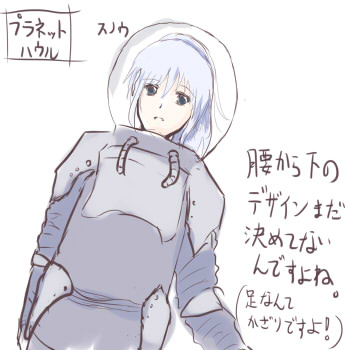 プラネット
ハウル
スノウ
腰から下の
デザインまだ
決めてない
んですよね。
(足なんて
かざりですよ!)